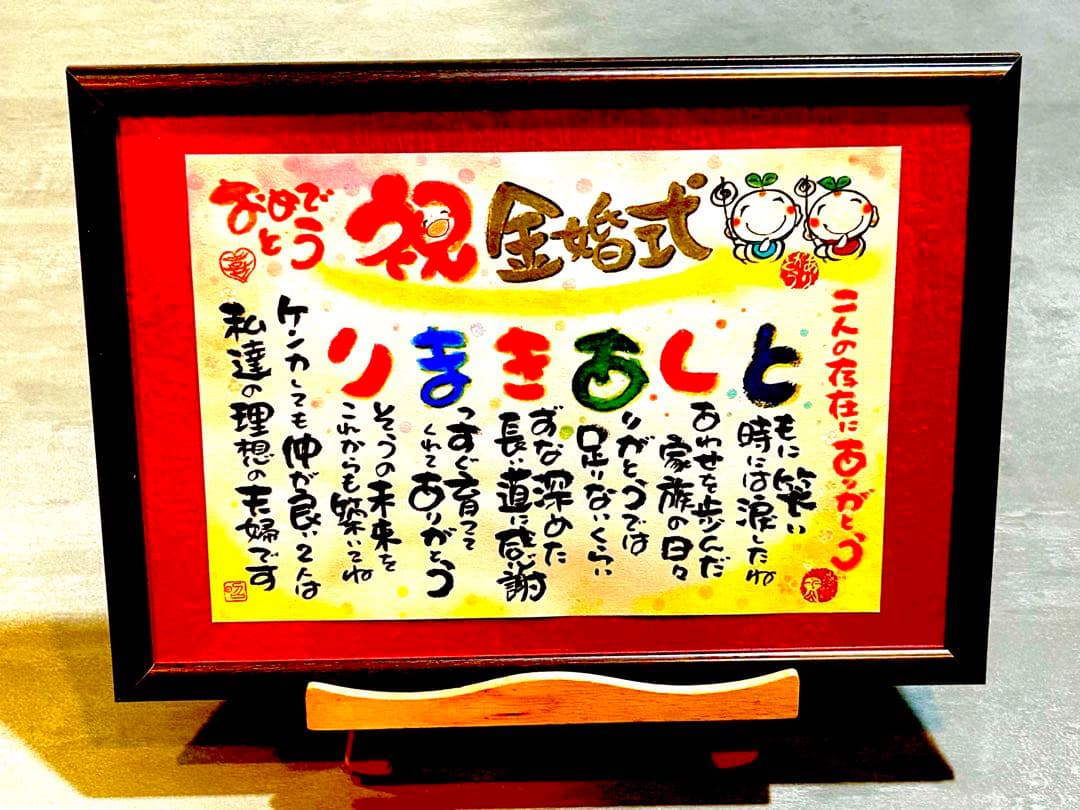 おめで
とう
祝 金婚式
二人の存在にありがとう
ともに笑い
時には涙したね
しあわせを歩んだ
家族の日々
ありがとうでは
足りないくらい
きずな深めた
長い道に感謝
まっすぐ育って
くれてありがとう
りそうの未来を
これからも築いてね
ケンカしても仲が良い2人は
私達の理想の夫婦です